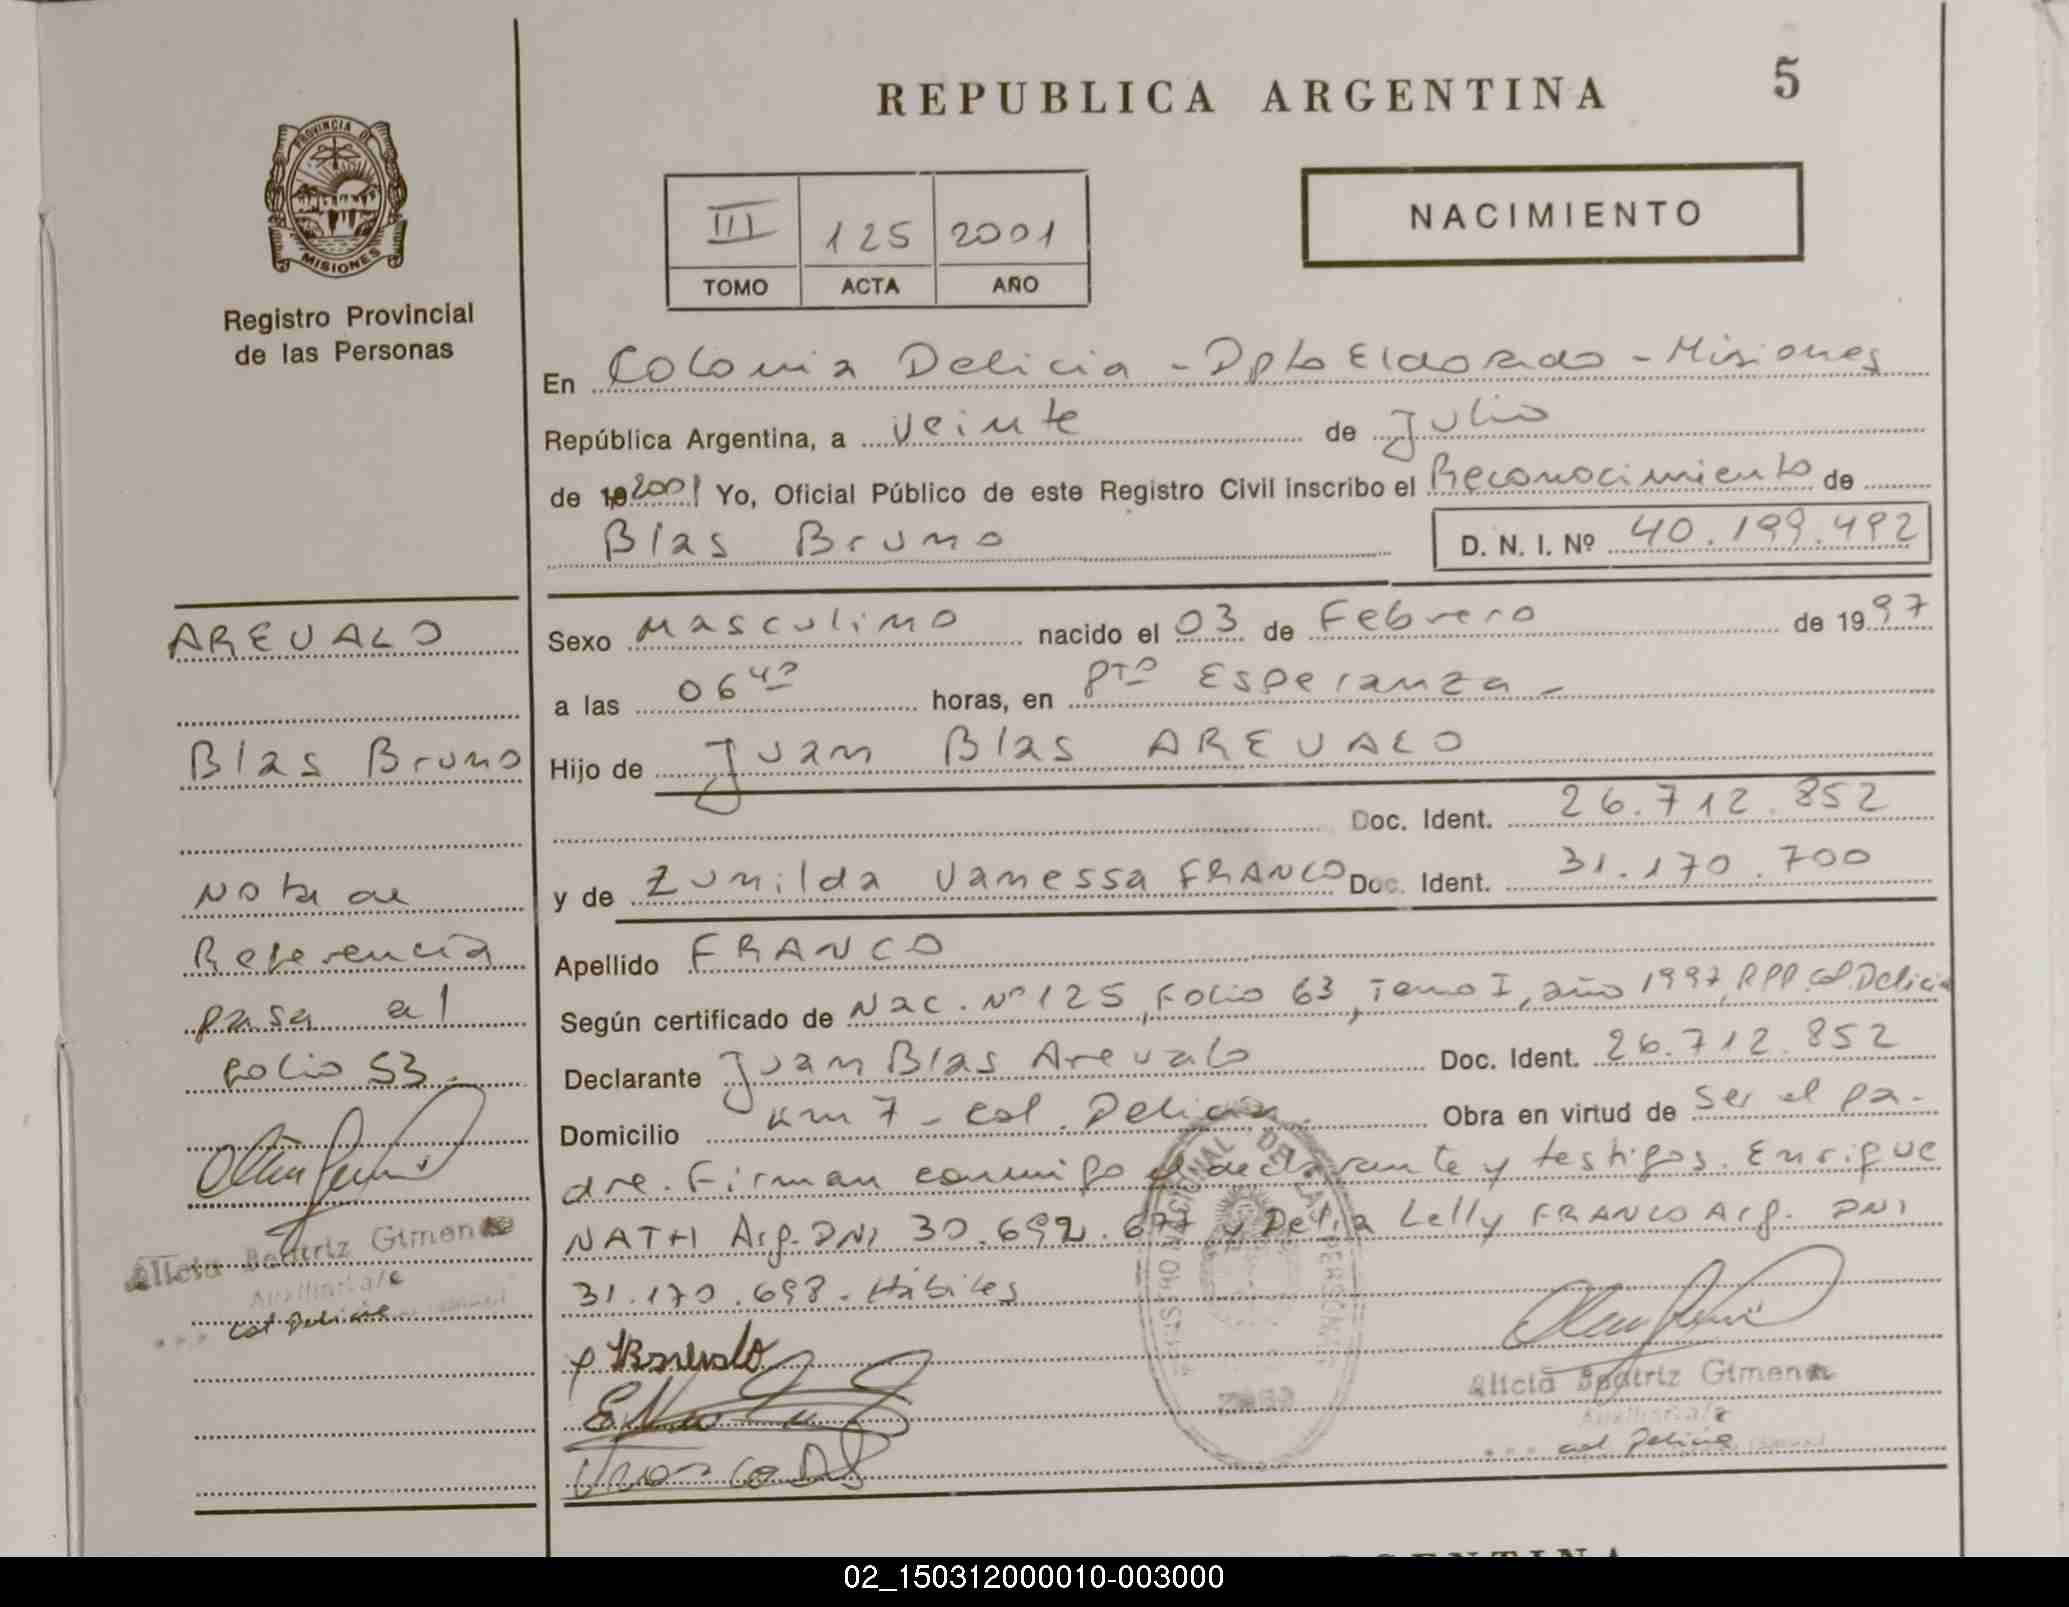 REPUBLICA ARGENTINA 5
PROVINCIA DE
MISIONES
Registro Provincial
de las Personas
III 125 2001
TOMO ACTA AÑO
NACIMIENTO
En Colonia Delicia - Dpto Eldorado - Misiones
República Argentina, a veinte de Julio
de 19 2001 Yo, Oficial Público de este Registro Civil inscribo el Reconocimiento de
Blas Bruno D. N. I. Nº 40.199.492
AREVALO
Blas Bruno
Nota de
Referencia
pasa al
folio 53.
Alicia Beatriz Gimenez
Auxiliar a/c
col Delicia
Sexo Masculino nacido el 03 de Febrero de 1997
a las 06 40 horas, en Pto Esperanza -
Hijo de Juan Blas AREVALO
Doc. Ident. 26.712.852
y de Zunilda Vanessa FRANCO Doc. Ident. 31.170.700
Apellido FRANCO
Según certificado de Nac. Nº 125, Folio 63, Tomo I, año 1997, RPP. Col. Delicia
Declarante Juan Blas Arevalo Doc. Ident. 26.712.852
Domicilio Km 7 - Col. Delicia Obra en virtud de ser el pa-
dre. Firman conmigo el declarante y testigos. Enrique
NATH Arg. DNI 30.692.677 y Delia Lelly FRANCO Arg. DNI
31.170.698. Hábiles
Alicia Beatriz Gimenez
Auxiliar a/c
col Delicia
ARGENTINA
02_150312000010-003000